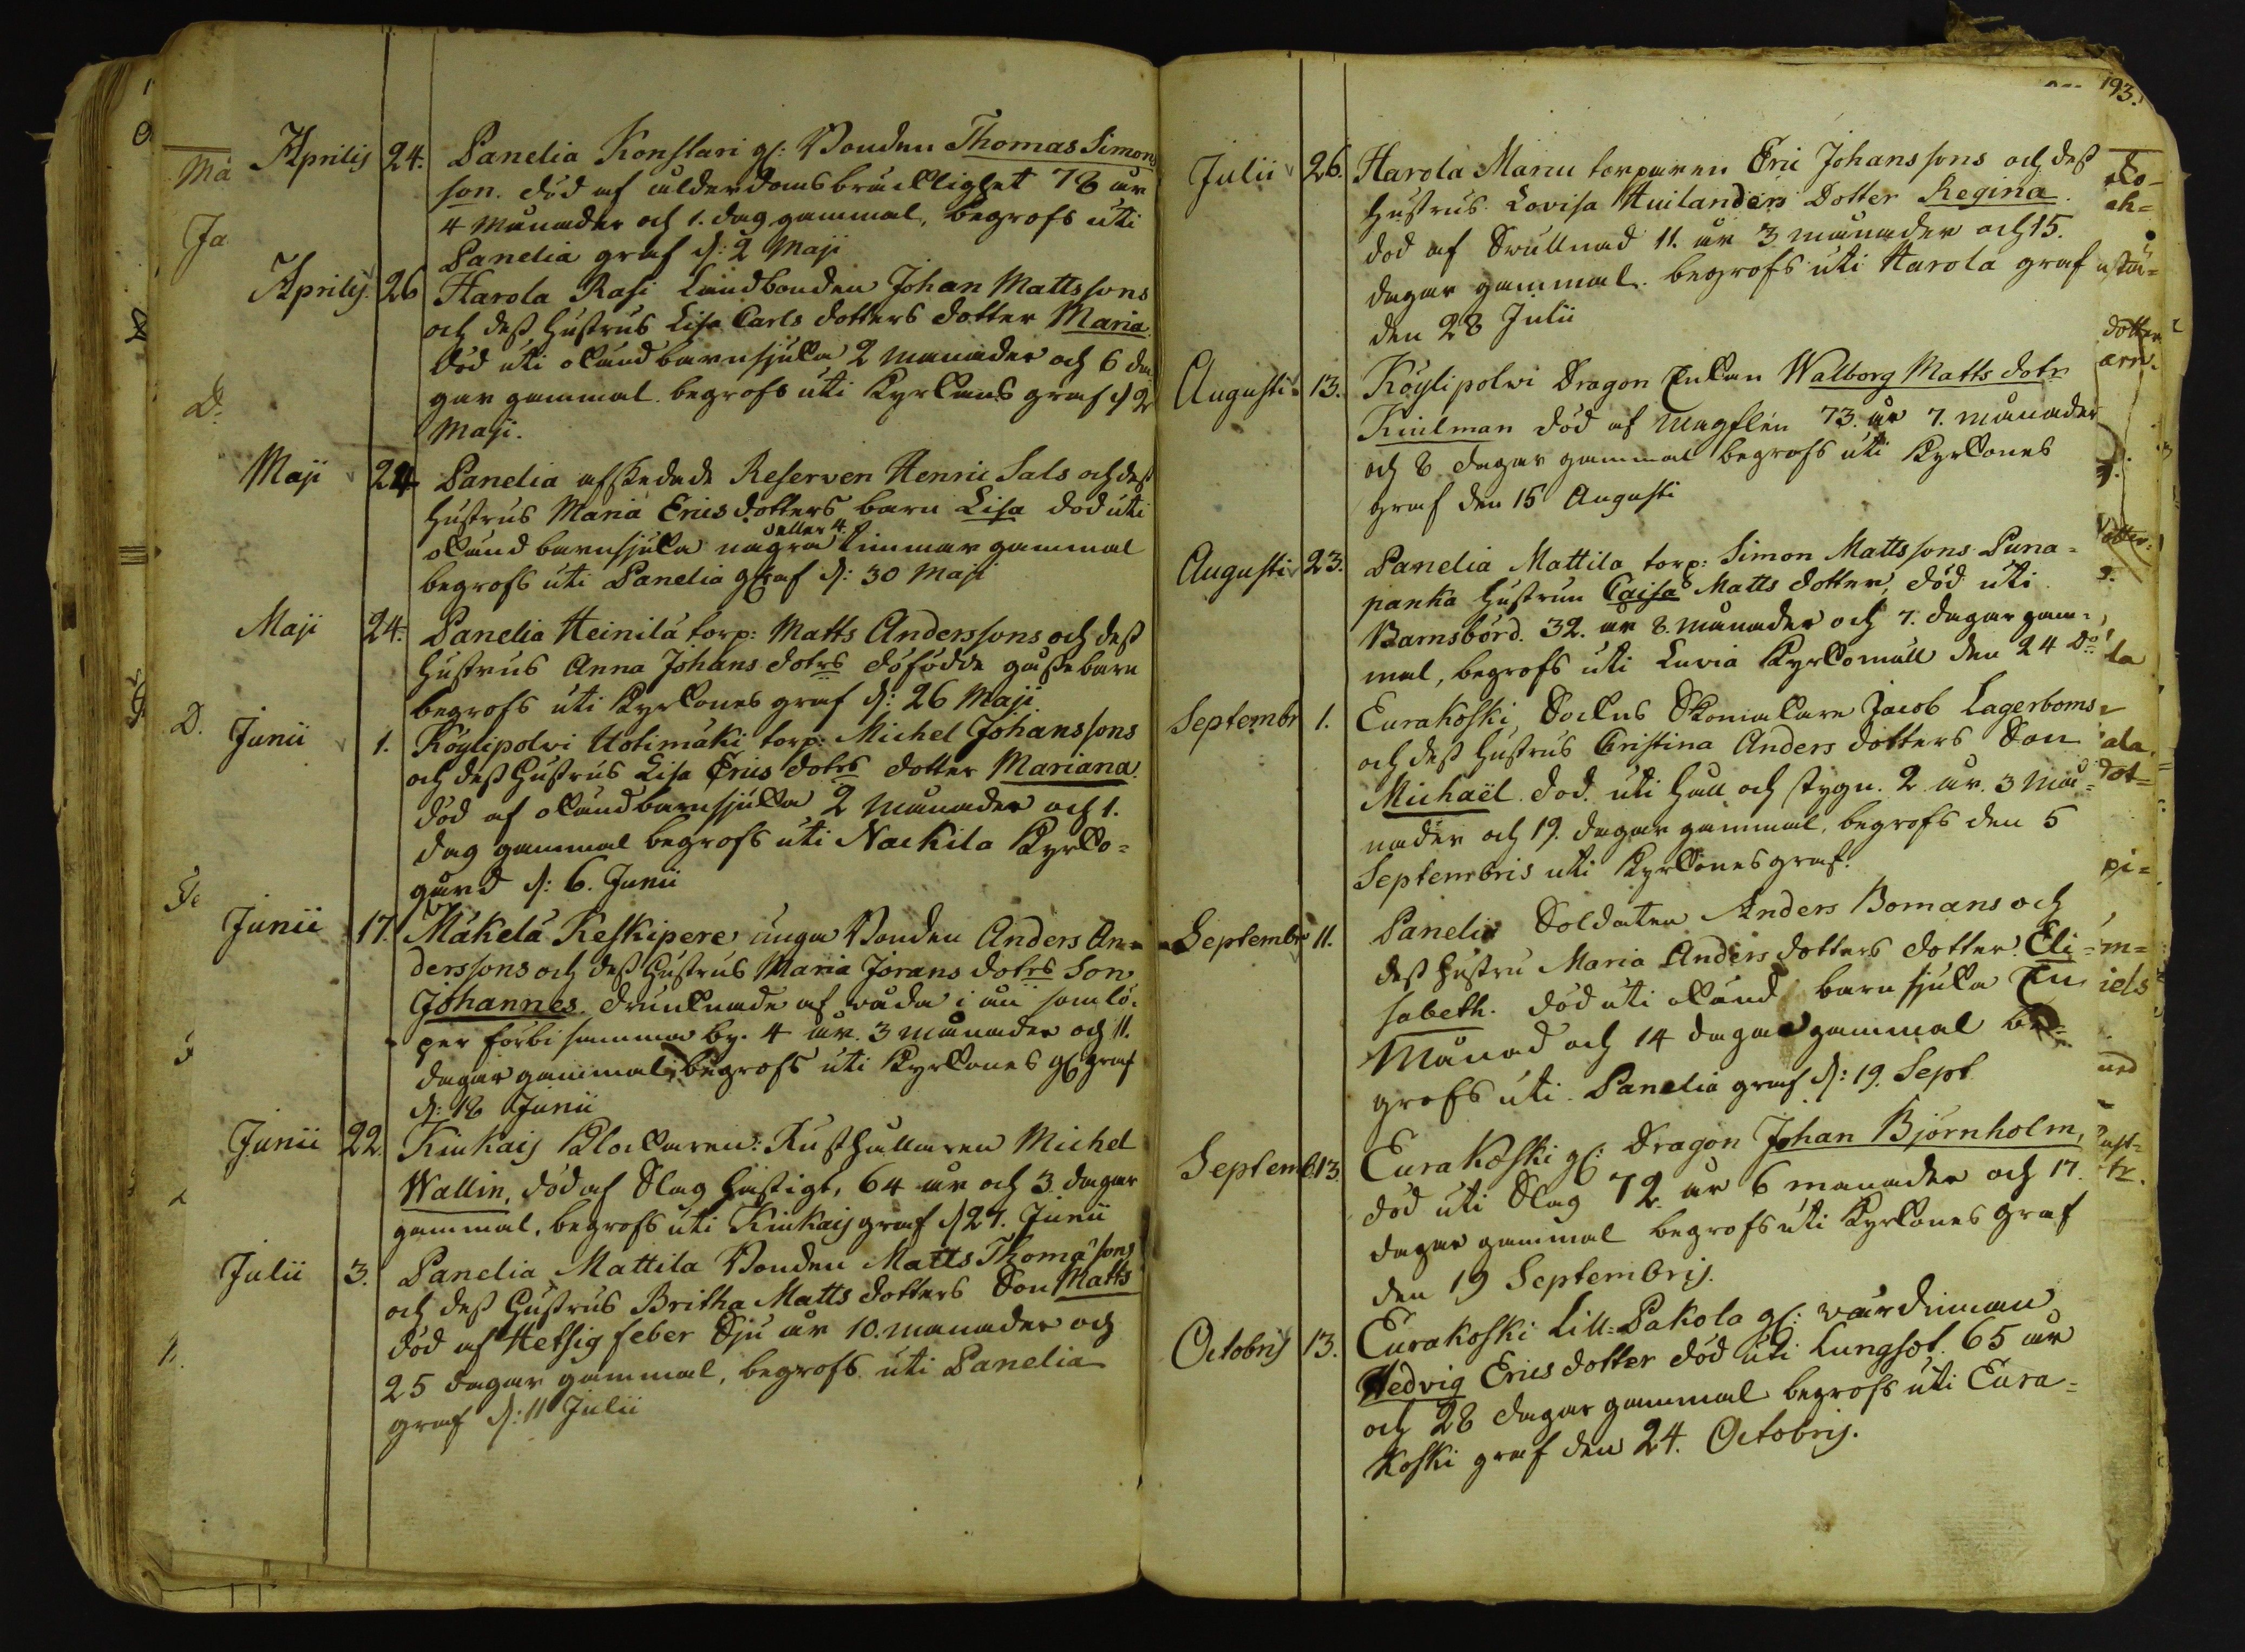 Aprilis 24. Panelia Konstari gl: Bonden Thomas Simons
son. död af ålderdomsbräcklighet 78 år
4 månader och 1. dag gammal, begrofs uti
Panelia graf d: 2 Maji
Aprilis 26 Harola Rasi Landbonden Johan Mattssons
och dess hustrus Lisa Carls dotters dotter Maria
död uti okänd barnsjuka 2 månader och 6 da
gar gammal. begrofs uti Kyrkans graf d 2
Maji.
Maji 24 Panelia afskedade Reserven Henric Sals och dess
hustrus Maria Erics dotters barn Lisa död uti
okänd barnsjuka några eller 4 timmar gammal
begrofs uti Panelia graf d: 30 Maji
Maji 24. Panelia Heinilä torp: Matts Anderssons och dess
hustrus Anna Johans dotrs dödfödde gåssebarn
begrofs uti Kyrkones graf d: 26 Maji.
Junii 1. Köylipolvi Uotimäki torp: Michel Johanssons
och dess hustrus Lisa Erics dotrs dotter Mariana.
död af okänd barnsjukla 2 månader och 1.
dag gammal begrofs uti Nackila Kyrko=
gård d: 6. Junii
Junii 17. Mäkelä Keskipere unga Bonden Anders An=
derssons och dess hustrus Maria Jörans dotrs Son
Johannes. drunknade af våda i åen som lö=
per förbi samma by. 4 år. 3 månader och 11.
dagar gammal, begrofs uti Kyrkones gl graf
d: 18 Junii
Junii 22. Kiukais Klockaren: Rusthållaren Michel
Wallin, död af Slag hastigt, 64 år och 3. dagar
gammal, begrofs uti Kiukais graf d 27. Junii
Julii 3. Panelia Mattila Bonden Matts Thomæ sons
och dess hustrus Britha Matts dotters Son Matts
död af Hetsig feber Sju år 10. månader och
25 dagar gammal, begrofs uti Panelia
graf d: 11 Julii
193.
Julii 26. Harola Manu torparen Eric Johanssons och dess
hustrus Lovisa Huilanders Dotter Regina.
död af Svullnad 11. år 3 månader och 15.
dagar gammal. begrofs uti Harola graf
den 28 Julii
Augusti 13. Köylipolvi Dragon Enkan Walborg Matts dotr
Kiulman död af Magplén 73. år 7. månader
och 8 dagar gammal begrofs uti Kyrkones
graf den 15 Augusti
Augusti 23. Panelia Mattila torp: Simon Mattssons Puna=
panka hustrun Caisa Matts dotter, död uti
Barnsbörd. 32. år 8. månader och 7. dagar gam=
mal, begrofs uti Luvia Kyrkomull den 24 Do
Septembr 1. Eurakoski, Sockns Skomakare Jacob Lagerboms
och dess hustrus Christina Anders dotters Son
Michaël. död. uti håll och stygn. 2 år. 3 må=
nader och 19. dagar gammal, begrofs den 5
Septembris uti Kyrkones graf.
Septembr 11. Panelia Soldaten Anders Bomans och
dess hustru Maria Anders dotters dotter Eli=
sabeth. död uti okänd barn sjuka En
Månad och 14 dagar gammal be=
grofs uti Panelia graf d: 19. Sept
Septemb. 13. Eurakoski gl: Dragon Johan Björnholm,
död uti Slag 72 år 6 månader och 17.
dagar gammal begrofs uti Kyrkones Graf
den 19 Septembris.
Octobris 13. Eurakoski Lill=Pakola gl: värdinnan
Hedvig Erics dotter död uti Lungsot. 65 år
och 28 dagar gammal begrofs uti Eura=
koski graf den 24. Octobris.